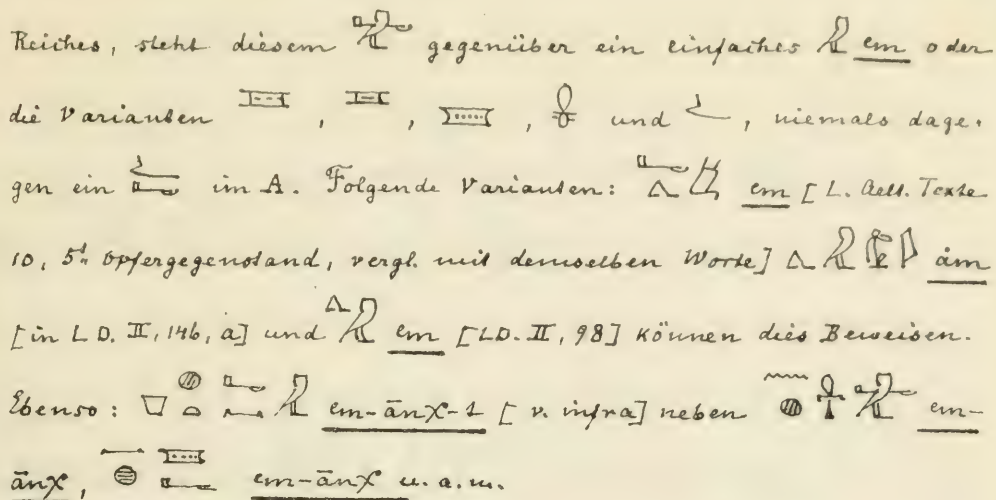 Reiches, steht diesem gegenüber ein einfaches em oder
die Varianten , , , und , niemals dage-
gen ein im A. Folgende Varianten: em [L. Aelt. Texte
10, 5t. Opfergegenstand, vergl. mit demselben Worte] àm
[in LD. II, 146, a] und em [LD. II, 98] können dies Beweisen.
Ebenso: em-ānχ-1 [v. infra] neben em-
ānχ, em-ānχ u. a. m.